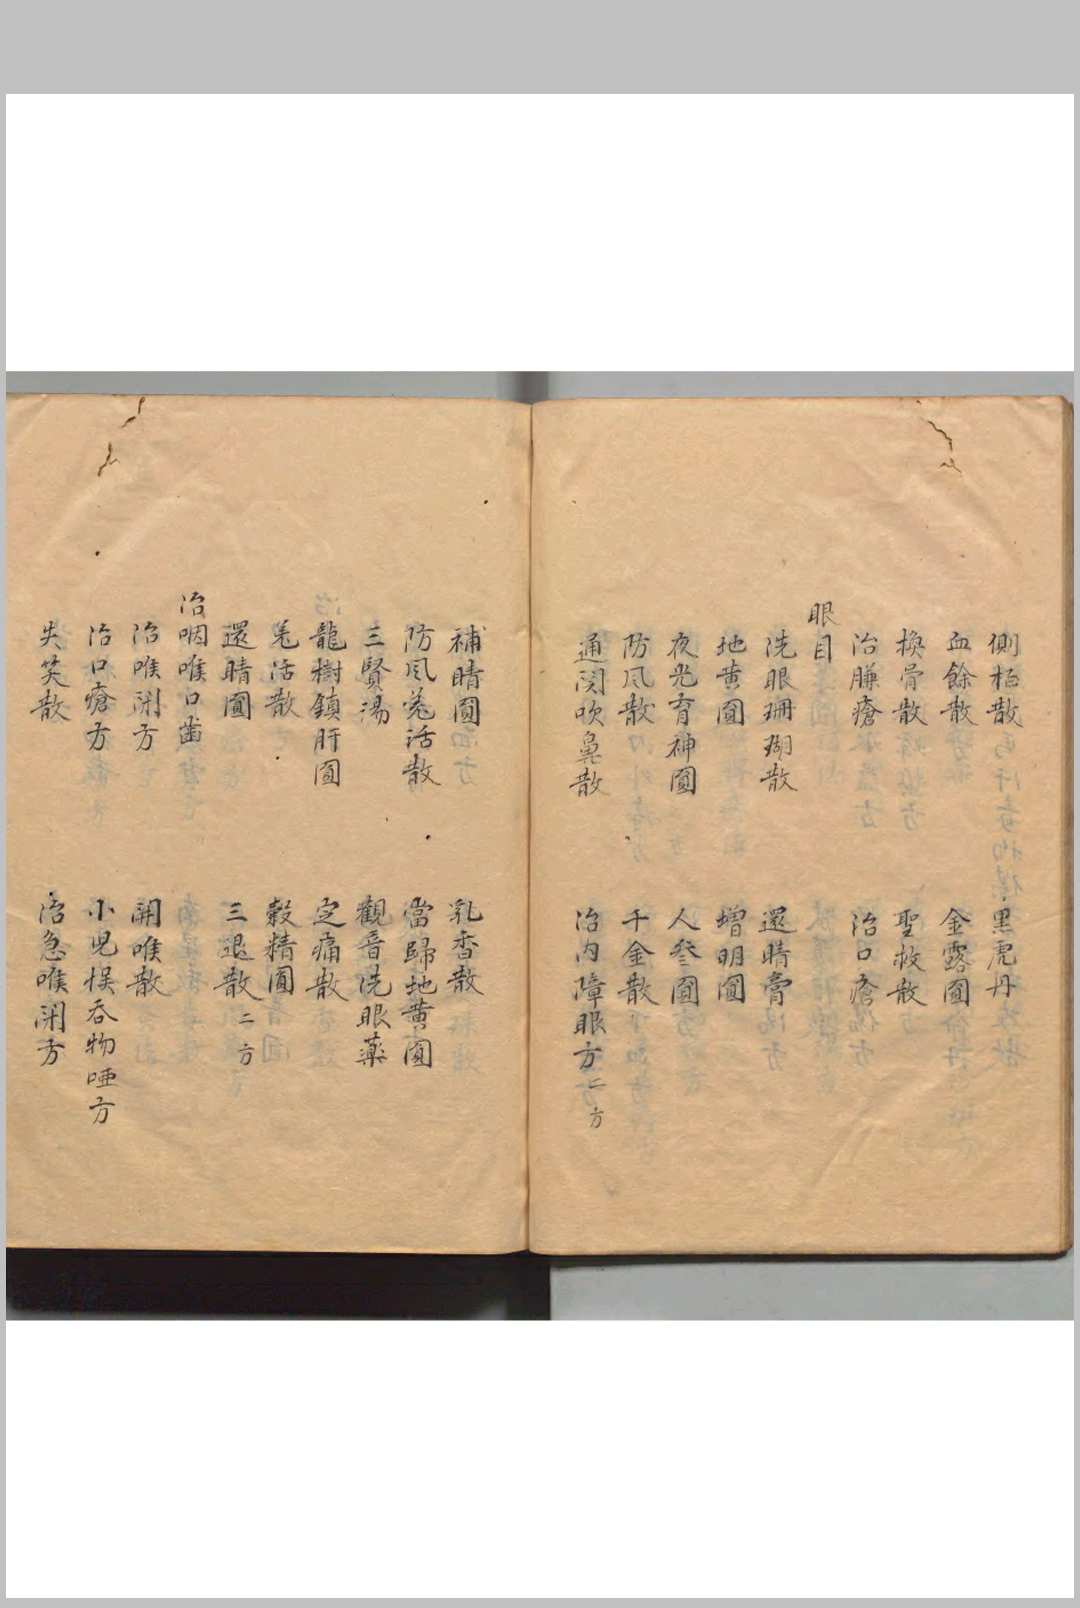 側栢散　黒虎丹
血餘散　金露圓
換骨散　聖救散
治臁瘡　治口瘡
眼目
洗眼珊瑚散　還睛膏
地黄圓　增明圓
夜光育神圓　人參圓
防风散　千金散
通関吹鼻散　治内障眼方二方
補睛圓　乳香散
防风羌活散　當歸地黄圓
三賢湯　觀音洗眼藥
龍樹鎮肝圓　定痛散
羌活散　穀精圓
還睛圓　三退散二方
治咽喉口齒
治喉閉方　開喉散
治口瘡方　小児悮吞物哑方
失笑散　治急喉閉方